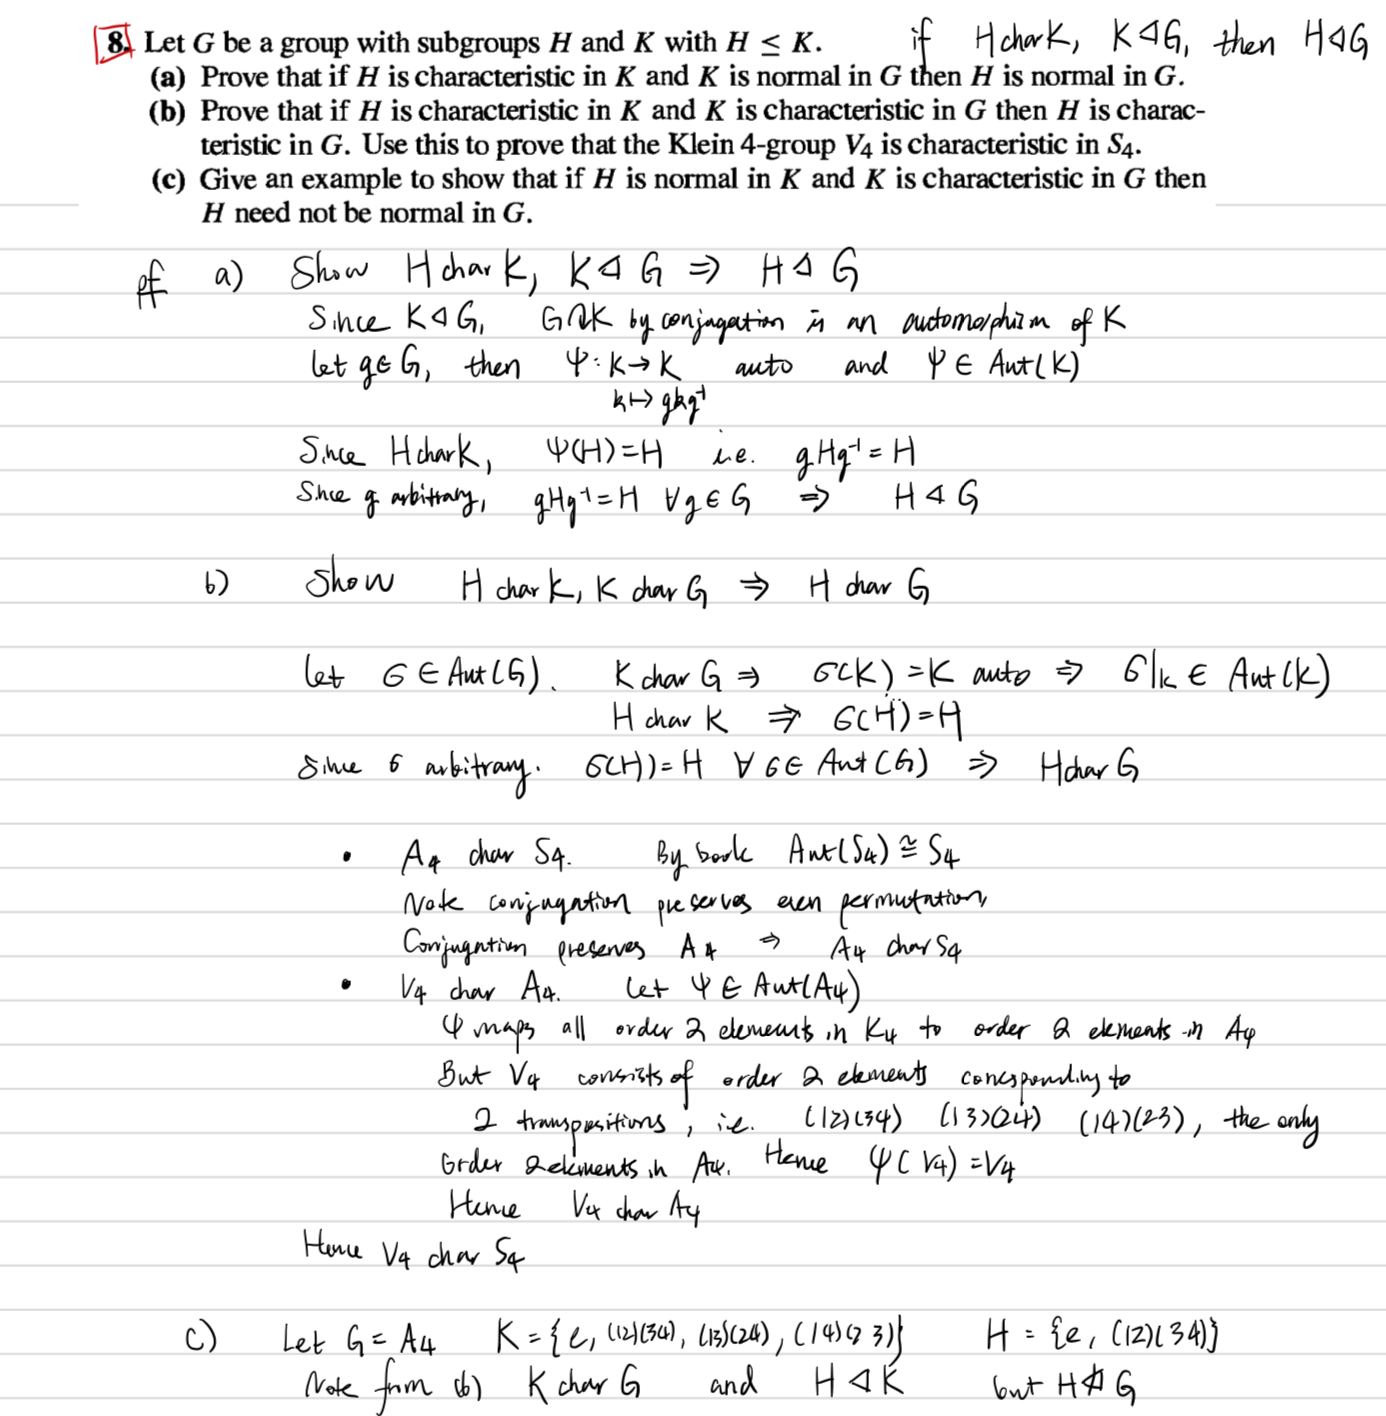 8. Let G be a group with subgroups H and K with H ≤ K. if H char K, K ⊲ G, then H ⊲ G
(a) Prove that if H is characteristic in K and K is normal in G then H is normal in G.
(b) Prove that if H is characteristic in K and K is characteristic in G then H is charac-
teristic in G. Use this to prove that the Klein 4-group V₄ is characteristic in S₄.
(c) Give an example to show that if H is normal in K and K is characteristic in G then
H need not be normal in G.
pf a) Show H char K, K ⊲ G ⇒ H ⊲ G
Since K ⊲ G, G ↷ K by conjugation is an automorphism of K
let g ∈ G, then ψ: K → K auto and ψ ∈ Aut(K)
k ↦ gkg⁻¹
Since H char K, ψ(H) = H i.e. gHg⁻¹ = H
Since g arbitrary, gHg⁻¹ = H ∀ g ∈ G ⇒ H ⊲ G
b) Show H char K, K char G ⇒ H char G
let σ ∈ Aut(G). K char G ⇒ σ(K) = K auto ⇒ σ|ₖ ∈ Aut(K)
H char K ⇒ σ(H) = H
Since σ arbitrary. σ(H) = H ∀ σ ∈ Aut(G) ⇒ H char G
• A₄ char S₄. By book Aut(S₄) ≅ S₄
Note conjugation preserves even permutation,
Conjugation preserves A₄ ⇒ A₄ char S₄
• V₄ char A₄. Let ψ ∈ Aut(A₄)
ψ maps all order 2 elements in K₄ to order 2 elements in A₄
But V₄ consists of order 2 elements corresponding to
2 transpositions, i.e. (12)(34) (13)(24) (14)(23), the only
order 2 elements in A₄. Hence ψ(V₄) = V₄
Hence V₄ char A₄
Hence V₄ char S₄
c) Let G = A₄ K = {e, (12)(34), (13)(24), (14)(23)} H = {e, (12)(34)}
Note from (b) K char G and H ⊲ K but H ⋪ G